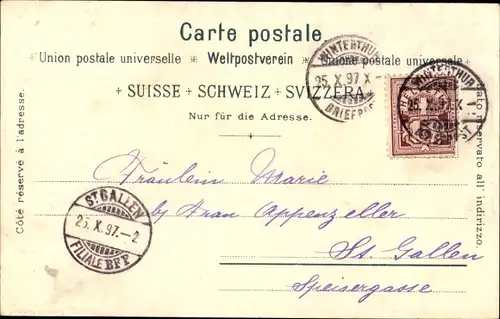 Carte postale
Union postale universelle ※ Weltpostverein ※ Unione postale universale
+ SUISSE + SCHWEIZ + SVIZZERA +
Nur für die Adresse.
Côté réservé à l'adresse.
Fräulein Marie
by Frau Appenzeller
St. Gallen
Speisergasse
WINTERTHUR
25. X. 97. X -
BRIEF
WINTERTHUR
25. X. 97. X
ST. GALLEN
25. X. 97. – 2
FILIALE BRP.
riservato all' indirizzo.